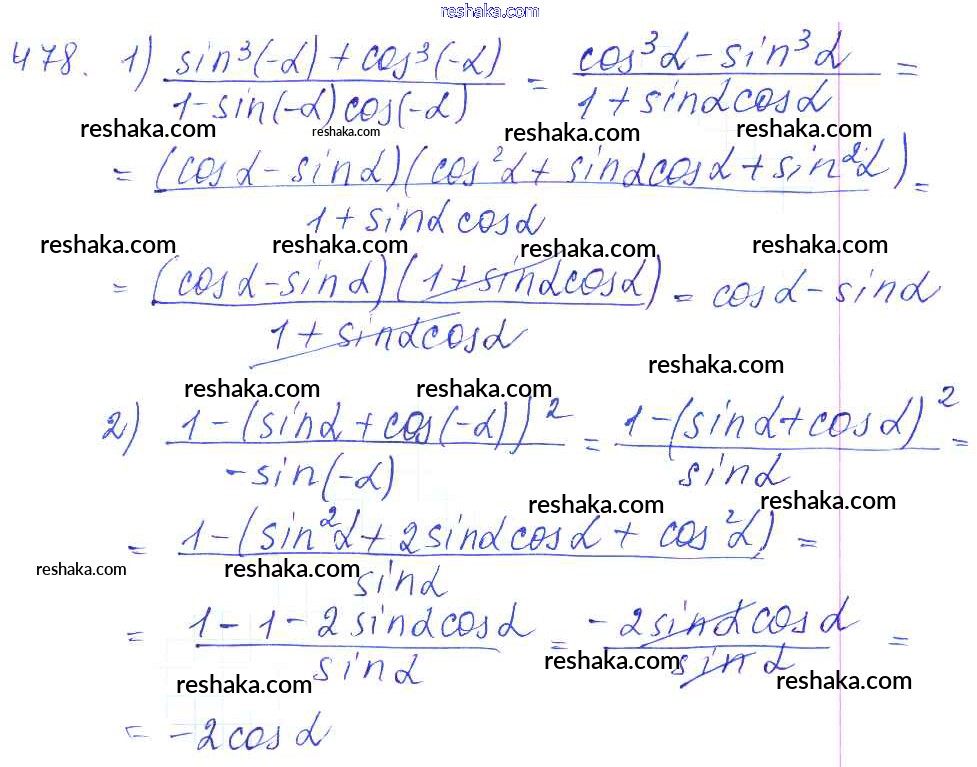 reshaka.com
478. 1) (sin³(-α) + cos³(-α)) / (1 - sin(-α) cos(-α)) = (cos³α - sin³α) / (1 + sinα cosα) =
reshaka.com reshaka.com reshaka.com reshaka.com
= (cosα - sinα)(cos²α + sinα cosα + sin²α) / (1 + sinα cosα) =
reshaka.com reshaka.com reshaka.com reshaka.com
= (cosα - sinα)(1 + sinα cosα) / (1 + sinα cosα) = cosα - sinα
reshaka.com
reshaka.com reshaka.com
2) (1 - (sinα + cos(-α))²) / (-sin(-α)) = (1 - (sinα + cosα)²) / sinα =
reshaka.com reshaka.com
= (1 - (sin²α + 2sinα cosα + cos²α)) / sinα =
reshaka.com reshaka.com
= (1 - 1 - 2sinα cosα) / sinα = (-2sinα cosα) / sinα =
reshaka.com reshaka.com reshaka.com
= -2cosα